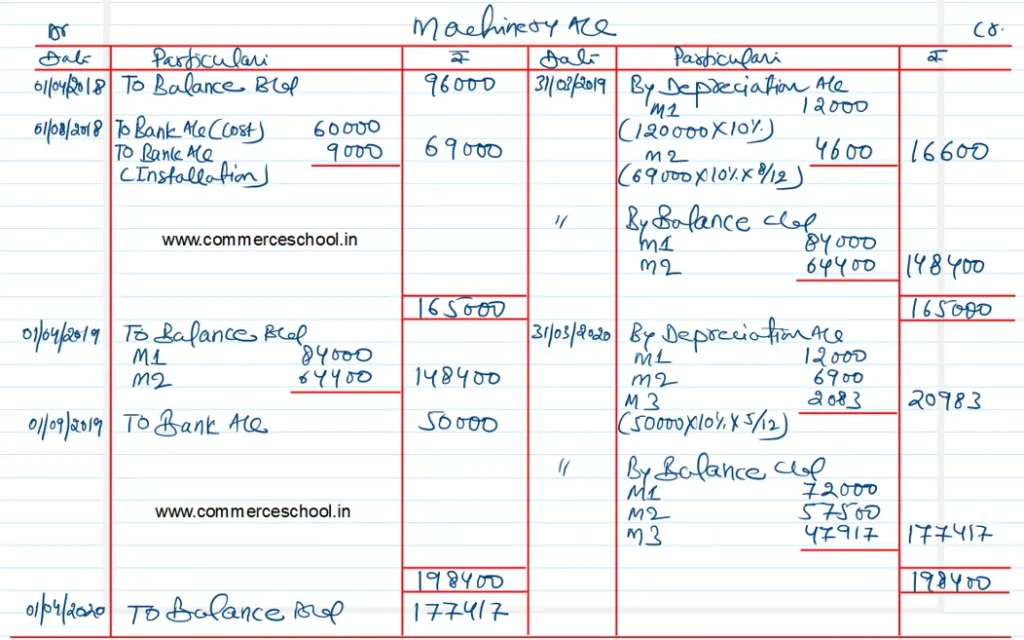 Machinery A/c
Dr Cr.
Date Particulars ₹ Date Particulars ₹
01/04/2018 To Balance B/d 96000 31/03/2019 By Depreciation A/c
M1 12000
01/08/2018 To Bank A/c (Cost) 60000 (120000X10%)
To Bank A/c 9000 69000 M2 4600 16600
(Installation) (69000X10%X8/12)
" By Balance c/d
www.commerceschool.in M1 84000
M2 64400 148400
165000 165000
01/04/2019 To Balance B/d 31/03/2020 By Depreciation A/c
M1 84000 M1 12000
M2 64400 148400 M2 6900
M3 2083 20983
01/09/2019 To Bank A/c 50000 (50000X10%X5/12)
" By Balance c/d
M1 72000
www.commerceschool.in M2 57500
M3 47917 177417
198400 198400
01/04/2020 To Balance B/d 177417